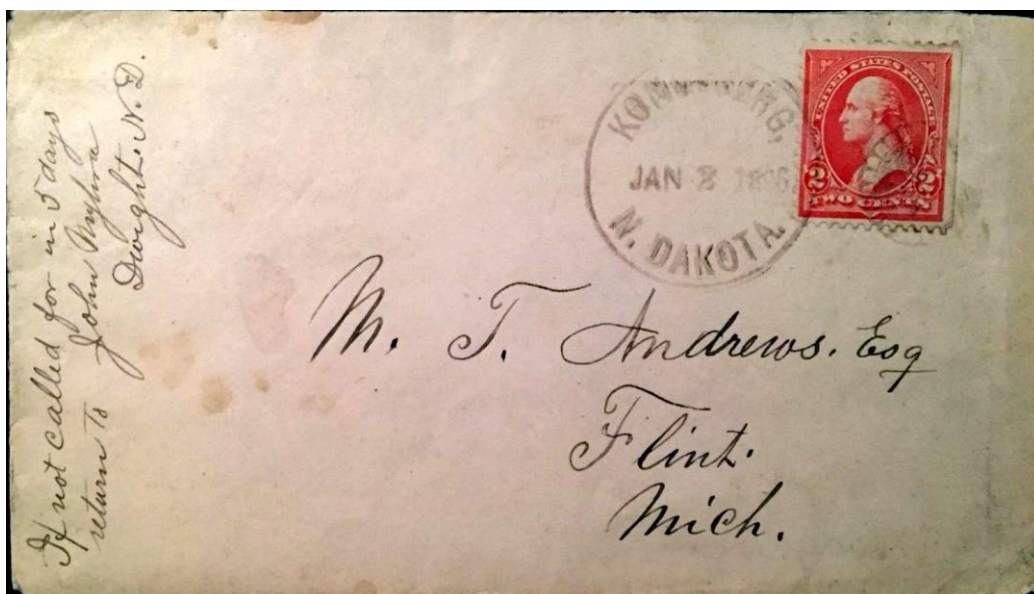 If not called for in 5 days
return to John Myhra
Dwight. N. D.
N. DAKOTA.
JAN
UNITED STATES POSTAGE
2 2
TWO CENTS
M. T. Andrews. Esq
Flint.
Mich.